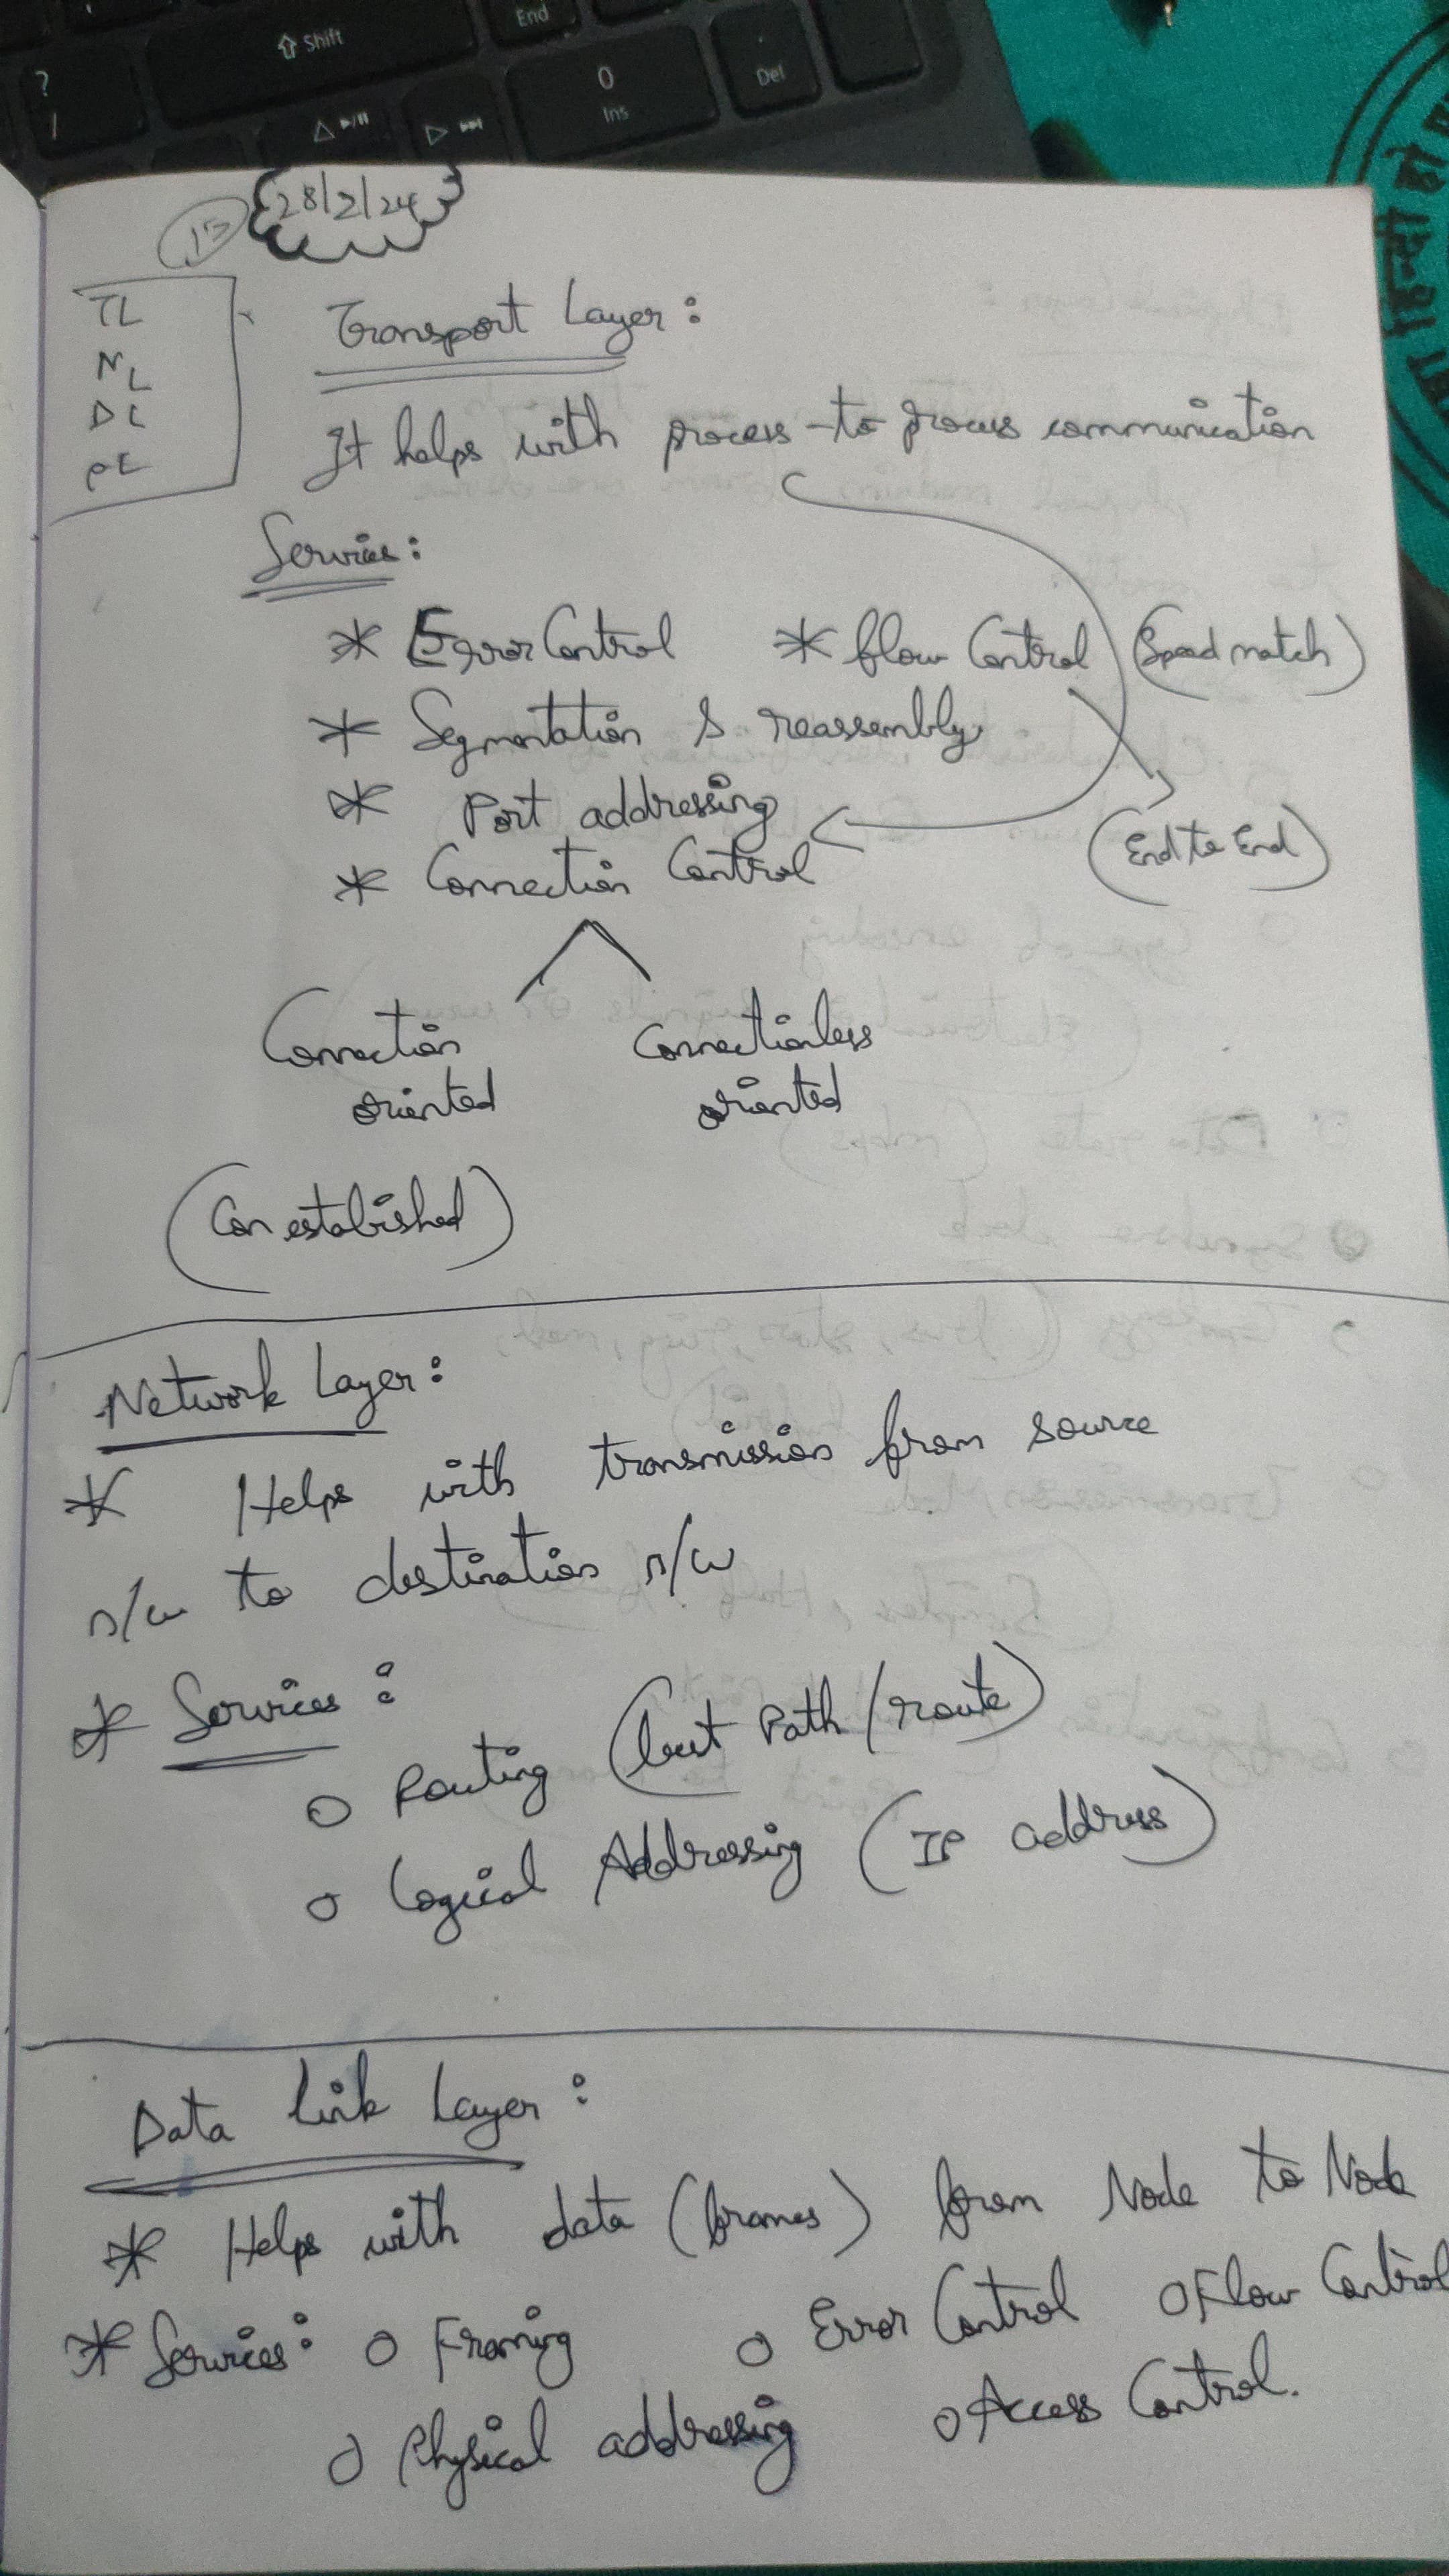 End
⇧ Shift
?
/
0
Ins
.
Del
15
28/2/24
TL
NL
DL
PL
Transport Layer:
It helps with process-to process communication
Services:
* Error Control * flow Control (Speed match)
* Segmentation & reassembly
* Port addressing
(End to End)
* Connection Control
Connection oriented
Connectionless oriented
(Con established)
Network Layer:
* Helps with transmission from source
n/w to destination n/w
* Services:
o Routing (best Path/route)
o Logical Addressing (IP address)
Data Link Layer:
* Helps with data (frames) from Node to Node
* Services: o Framing o Error Control o Flow Control
o Physical addressing o Access Control.